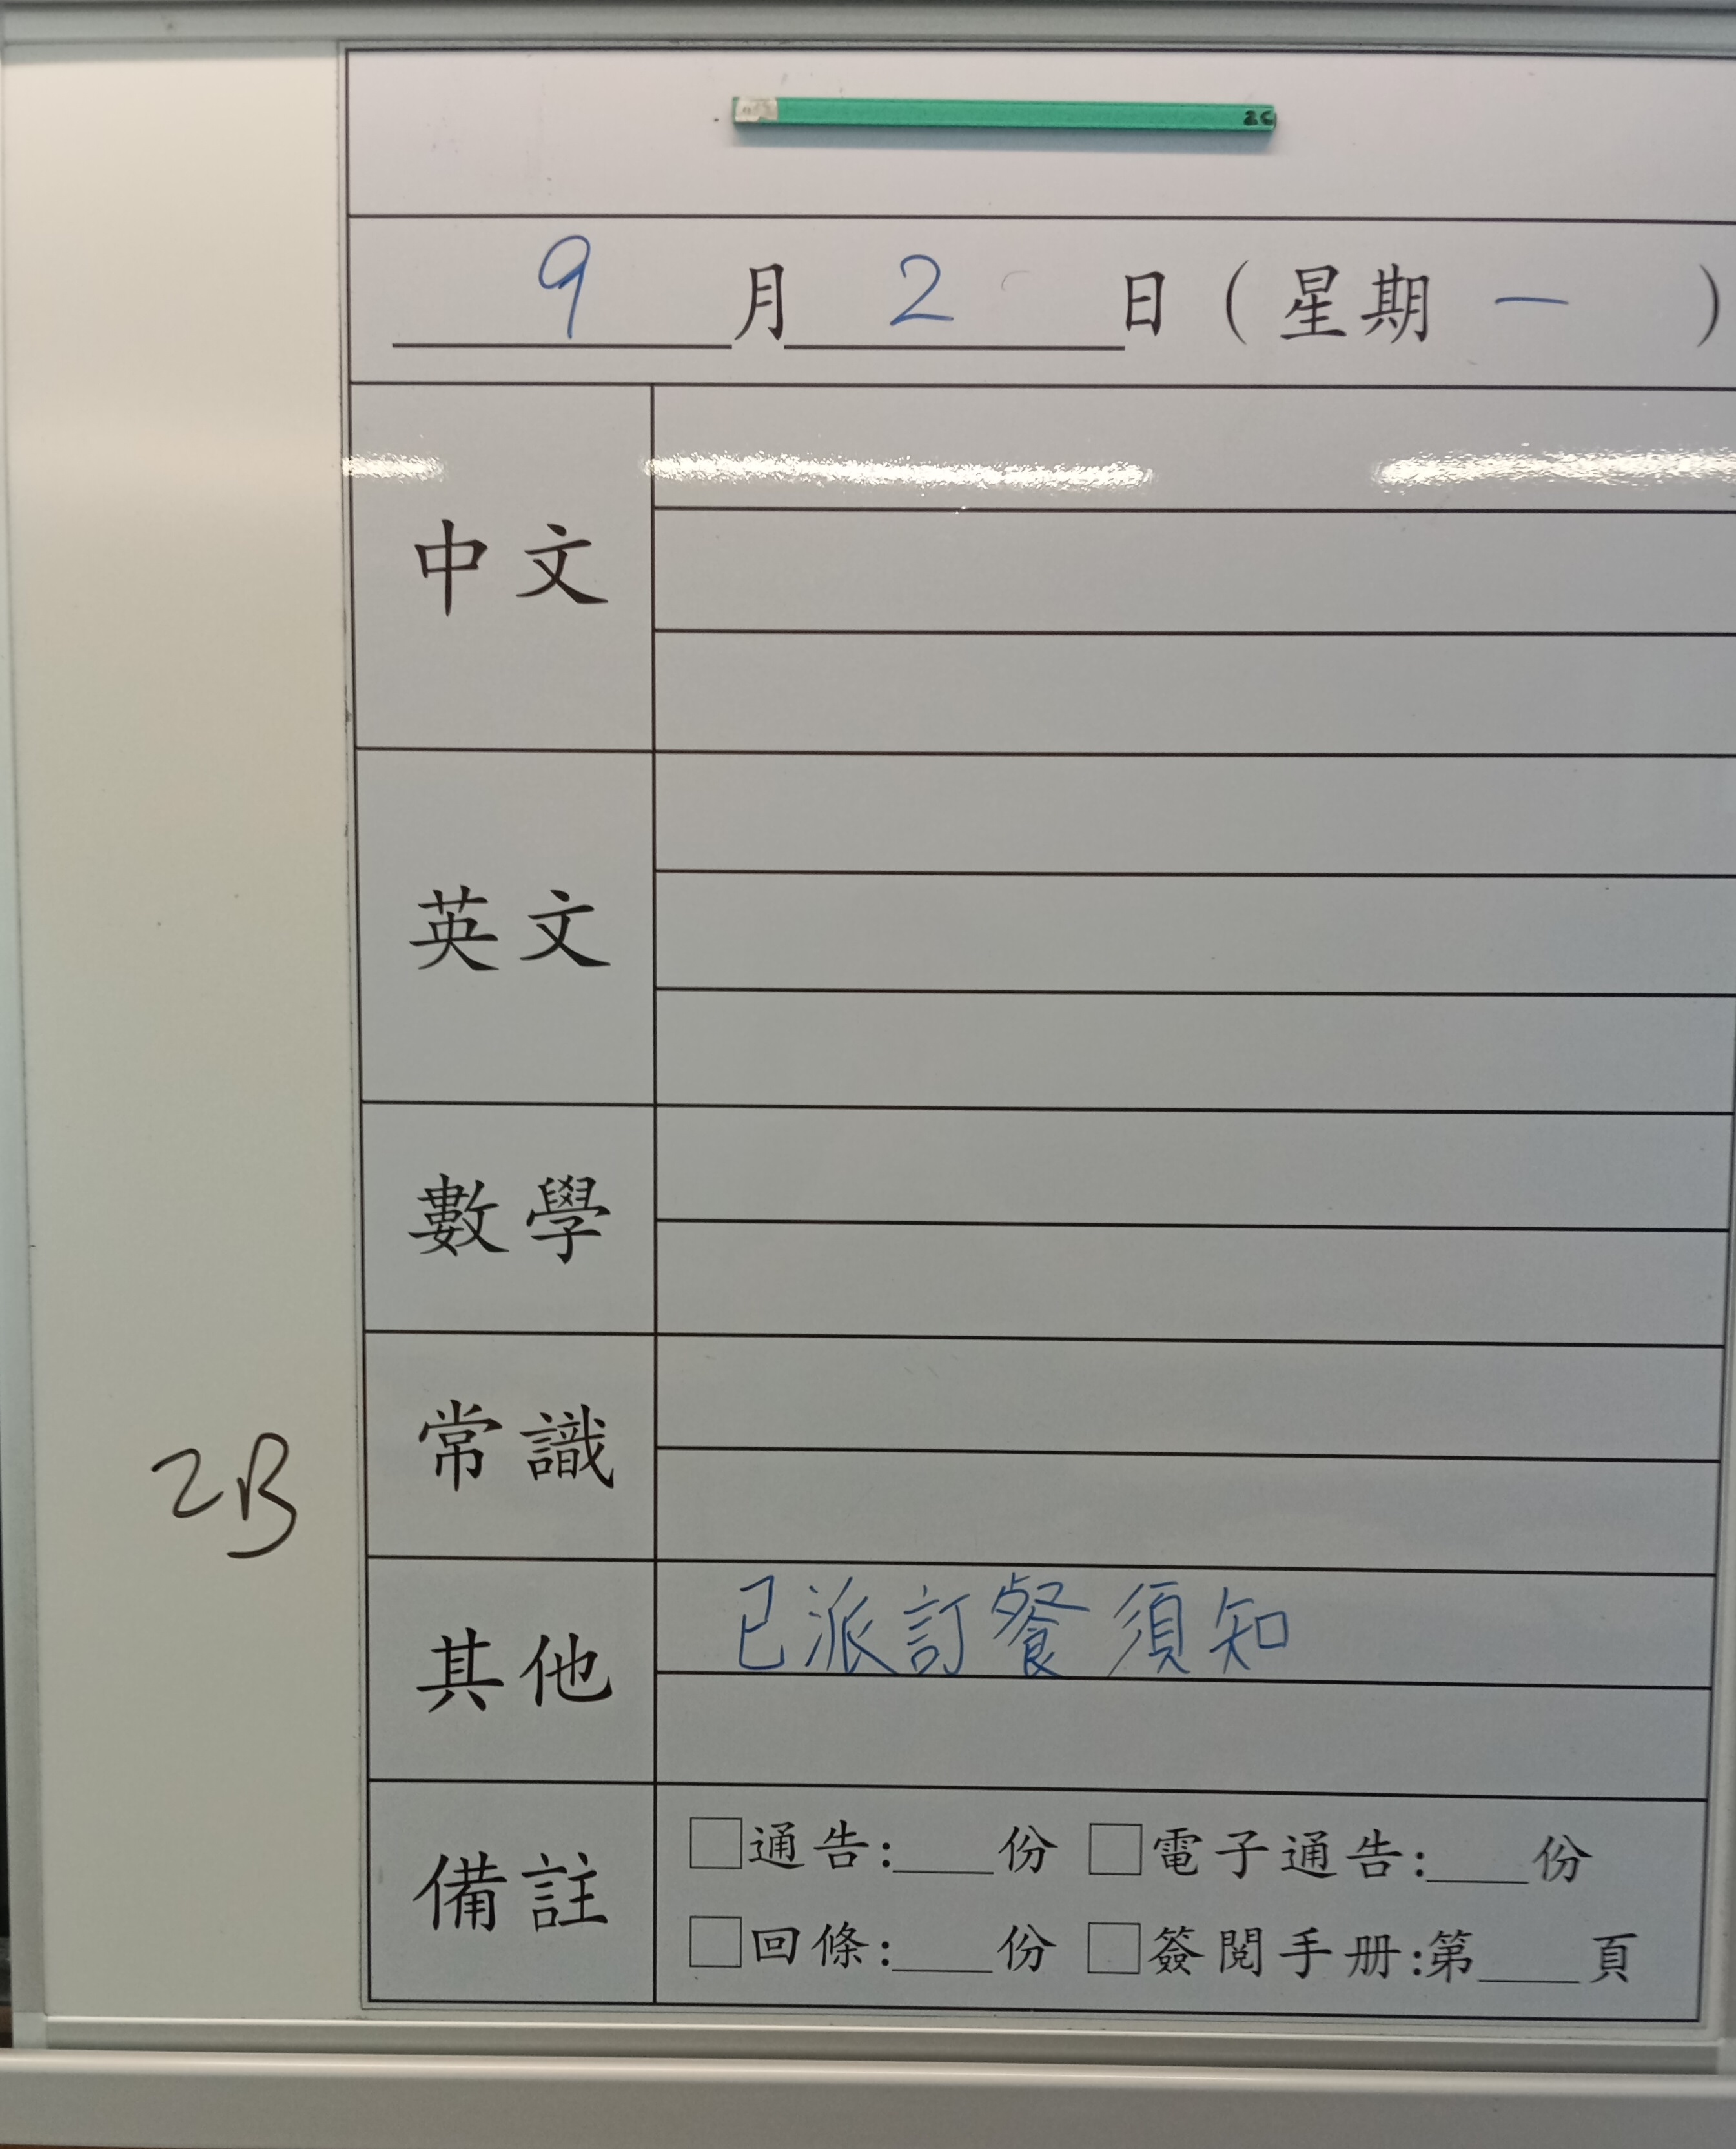 2C
9月2日(星期一)
中文
英文
數學
常識
2B
其他 已派訂餐須知
備註 □通告:___份 □電子通告:___份
□回條:___份 □簽閱手册:第___頁